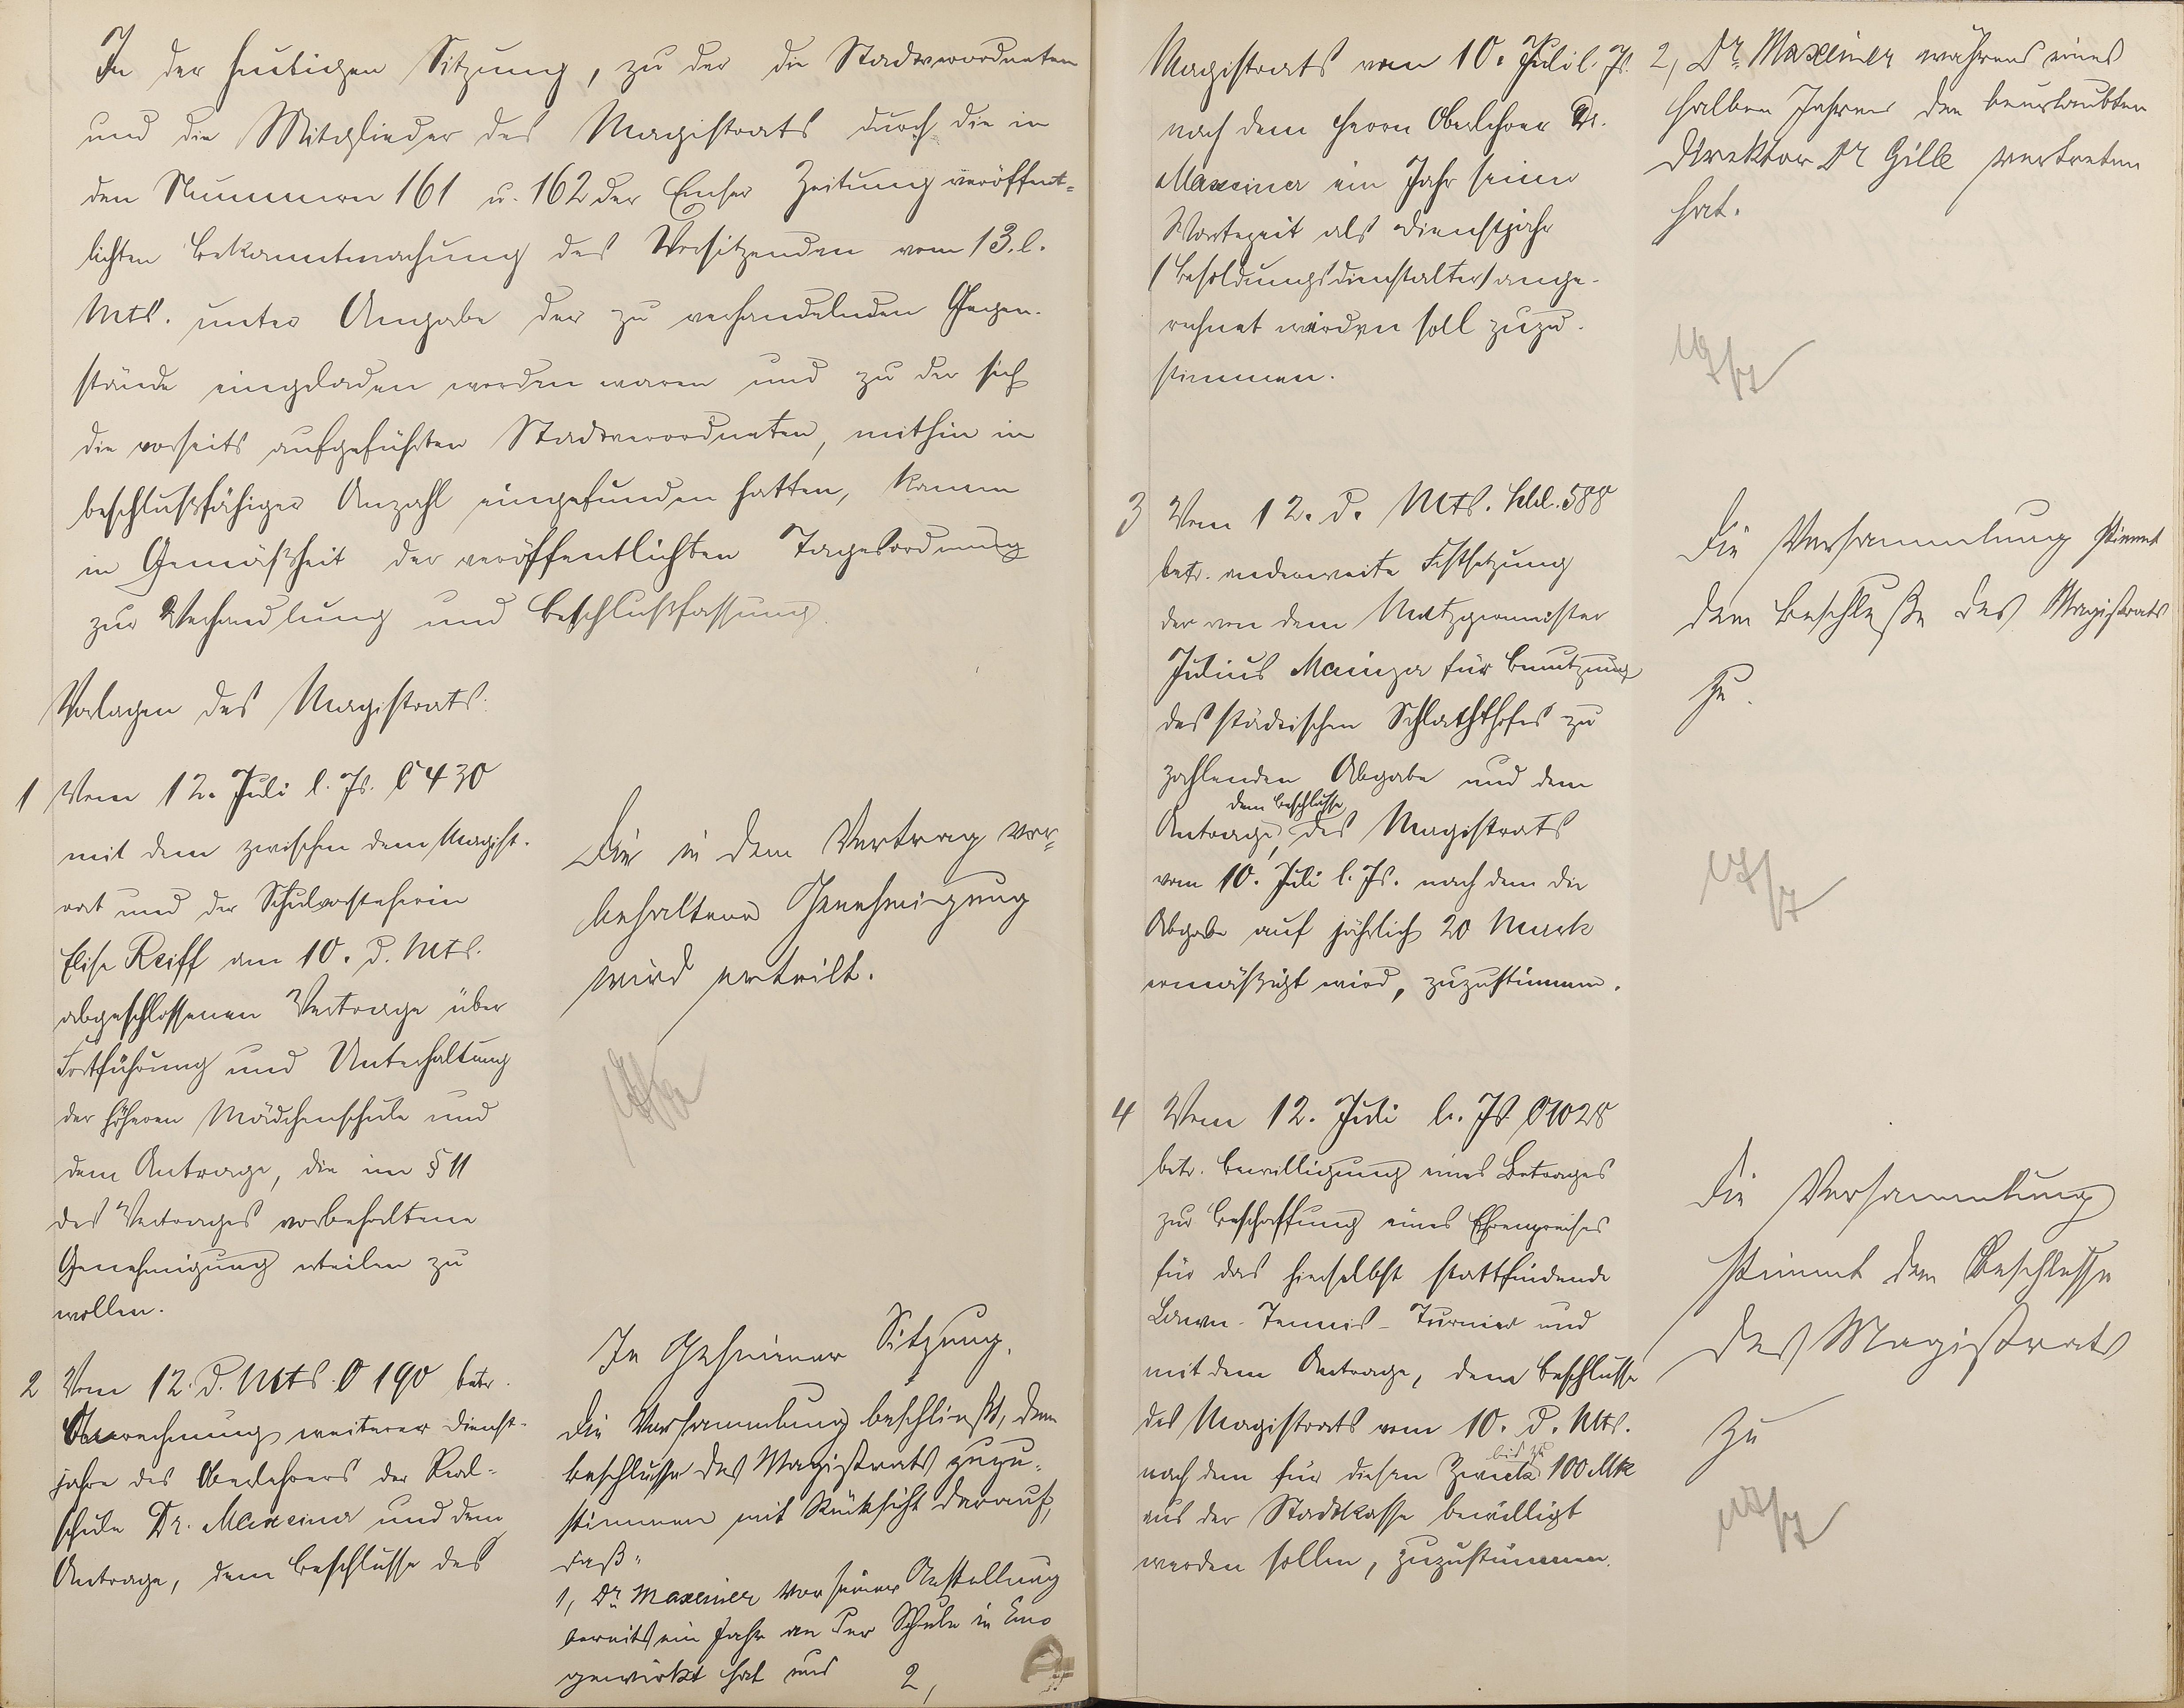 In der heutigen Sitzung, zu der die Stadtverordneten
und die Mitglieder des Magistrats durch die in
den Nummern 161 u. 162 der Emser Zeitung veröffent-
lichten Bekanntmachung des Vorsitzenden vom 13. l.
Mts. unter Angabe der zu verhandelnden Gegen-
stände eingeladen worden waren und zu der sich
die vorseits aufgeführten Stadtverordneten, mithin in
beschlußfähiger Anzahl eingefunden hatten, kamen
in Gemäßheit der veröffentlichten Tagesordnung
zur Verhandlung und Beschlußfassung
Vorlagen des Magistrats:
1 Vom 12. Juli l. Js. C 430
mit dem zwischen dem Magist-
rat und der Schulvorsteherin
Elise Reiff am 10. d. Mts.
abgeschlossenen Vertrage über
Fortführung und Unterhaltung
der höheren Mädchenschule und
dem Antrage, die im § 11
des Vertrages vorbehaltene
Genehmigung erteilen zu
wollen.
Die in dem Vertrag vor-
behaltene Genehmigung
wird erteilt.
2 Vom 12. d. Mts. O 190 betr.
Anrechnung weiterer Dienst-
jahre des Oberlehrers der Real-
schule Dr. Maxeiner und dem
Antrage, dem Beschlusse des
In Geheimer Sitzung.
Die Versammlung beschließt, dem
Beschlusse des Magistrats zuzu-
stimmen mit Rücksicht darauf,
daß
1, Dr. Maxeiner vor seiner Anstellung
bereits ein Jahr an der Schule in Ems
gewirkt hat und
2,
Magistrats vom 10. Juli l. Js.
nach dem Herrn Oberlehrer Dr.
Maxeiner ein Jahr seiner
Wartezeit als Dienstjahr
(Besoldungsdienstalter) ange-
rechnet werden soll zuzu-
stimmen.
2, Dr. Maxeiner während eines
halben Jahres den beurlaubten
Direktor Dr Gille vertreten
hat.
3 Vom 12. d. Mts. 588
betr. anderweite Festsetzung
der von dem Metzgermeister
Julius Mainzer für Benutzung
des städtischen Schlachthofes zu
zahlenden Abgabe und dem
Antrage, dem Beschlusse des Magistrats
vom 10. Juli l. Js. nach dem die
Abgabe auf jährlich 20 Mark
ermäßigt wird, zuzustimmen.
Die Versammlung stimmt
dem Beschluße des Magistrats
zu.
17/7
4 Vom 12. Juli l. Js 1028
betr. Bewilligung eines Betrages
zur Beschaffung eines Ehrenpreises
für das hierselbst stattfindende
Lawn-Tennis-Turnier und
mit dem Antrage, dem Beschlusse
des Magistrats vom 10. d. Mts.
nach dem für diesen Zweck bis zu 100 Mk
aus der Stadtkasse bewilligt
werden sollen, zuzustimmen.
Die Versammlung
stimmt dem Beschlusse
des Magistrats
zu
17/7